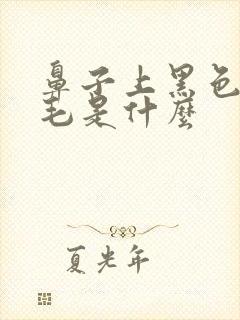 鼻子上黑色
毛是什麽
夏光年